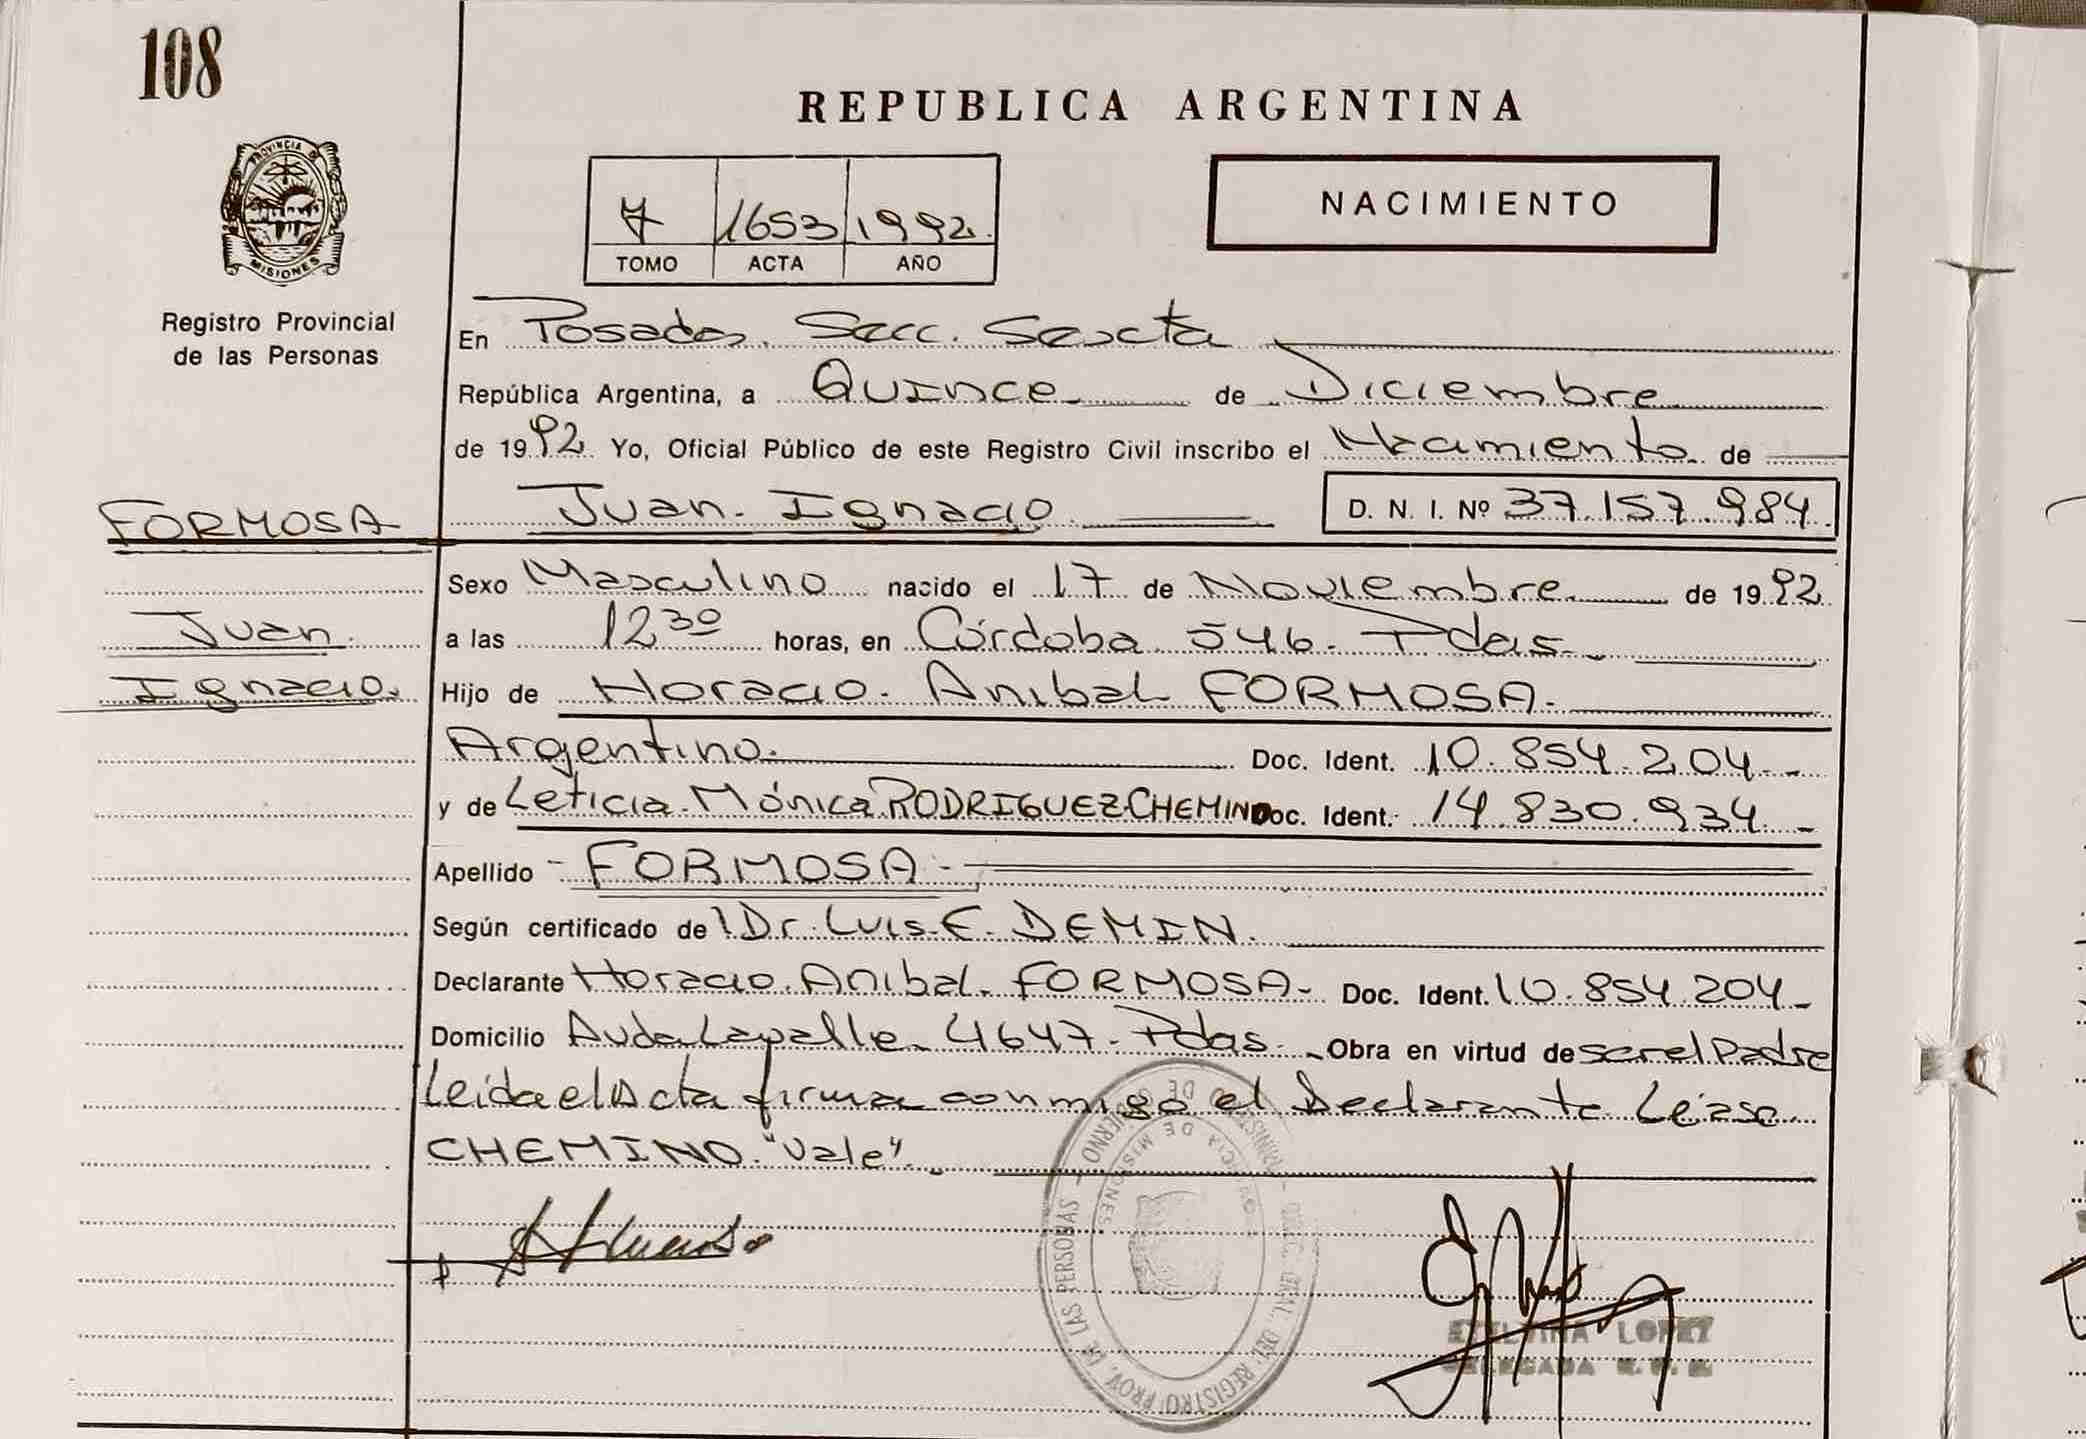 108
PROVINCIA DE
MISIONES
Registro Provincial
de las Personas
REPUBLICA ARGENTINA
7 1653 1992.
TOMO ACTA AÑO
NACIMIENTO
En Posadas. Secc. Sexta
República Argentina, a Quince de Diciembre
de 1992. Yo, Oficial Público de este Registro Civil inscribo el Nacimiento de
Juan Ignacio D. N. I. Nº 37.157.984.
FORMOSA
Juan
Ignacio.
Sexo Masculino nacido el 17 de Noviembre de 1992
a las 12 30 horas, en Córdoba 546. Pdas.
Hijo de Horacio. Anibal FORMOSA.
Argentino. Doc. Ident. 10.854.204.-
y de Leticia Mónica RODRIGUEZ CHEMIN Doc. Ident. 14.830.934.-
Apellido - FORMOSA -
Según certificado de Dr. Luis E. DEMIN.
Declarante Horacio Anibal FORMOSA - Doc. Ident. 10.854.204-
Domicilio Avda Lavalle 4647. Pdas. Obra en virtud de ser el Padre
Leida el Acta firma conmigo el Declarante Léase
CHEMINO. "Vale"
DIREC. GRAL. DEL REGISTRO PROV. DE LAS PERSONAS - MINISTERIO DE GOBIERNO
PROVINCIA DE MISIONES
LOPEZ